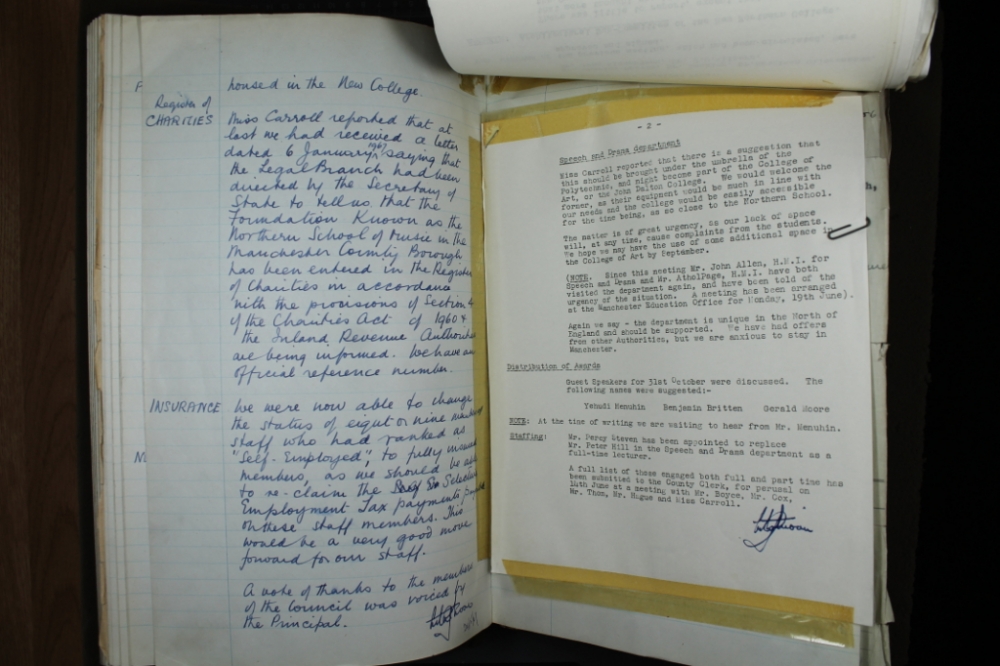 F
housed in the New College.
Register of
CHARITIES
Miss Carroll reported that at
last we had received a letter
dated 6 January 1967, saying that
the Legal Branch had been
directed by the Secretary of
State to tell us that the
Foundation Known as the
Northern School of Music in the
Manchester County Borough
has been entered in the Register
of Charities in accordance
with the provisions of Section 4
of the Charities Act of 1960 &
the Inland Revenue Authorities
are being informed. We have an
official reference number.
INSURANCE
We were now able to change
the status of eight or nine members of
staff who had ranked as
"Self-Employed", to fully insured
members, as we should be able
to re-claim the Selective
Employment Tax payments
on these staff members. This
would be a very good move
forward for our staff.
N
A vote of thanks to the members
of the Council was voiced by
the Principal.
- 2 -
Speech and Drama department
Miss Carroll reported that there is a suggestion that
this should be brought under the umbrella of the
Polytechnic, and might become part of the College of
Art, or the John Dalton College. We would welcome the
former, as their equipment would be much in line with
our needs and the college would be easily accessible
for the time being, as so close to the Northern School.
The matter is of great urgency, as our lack of space
will, at any time, cause complaints from the students.
We hope we may have the use of some additional space in
the College of Art by September.
(NOTE. Since this meeting Mr. John Allen, H.M.I. for
Speech and Drama and Mr. AtholPage, H.M.I. have both
visited the department again, and have been told of the
urgency of the situation. A meeting has been arranged
at the Manchester Education Office for Monday, 19th June).
Again we say - the department is unique in the North of
England and should be supported. We have had offers
from other Authorities, but we are anxious to stay in
Manchester.
Distribution of Awards
Guest Speakers for 31st October were discussed. The
following names were suggested:-
Yehudi Menuhin Benjamin Britten Gerald Moore
NOTE: At the time of writing we are waiting to hear from Mr. Menuhin.
Staffing: Mr. Percy Steven has been appointed to replace
Mr. Peter Hill in the Speech and Drama department as a
full-time lecturer.
A full list of those engaged both full and part time has
been submitted to the County Clerk, for perusal on
16th June at a meeting with Mr. Boyce, Mr. Cox,
Mr. Thom, Mr. Hague and Miss Carroll.